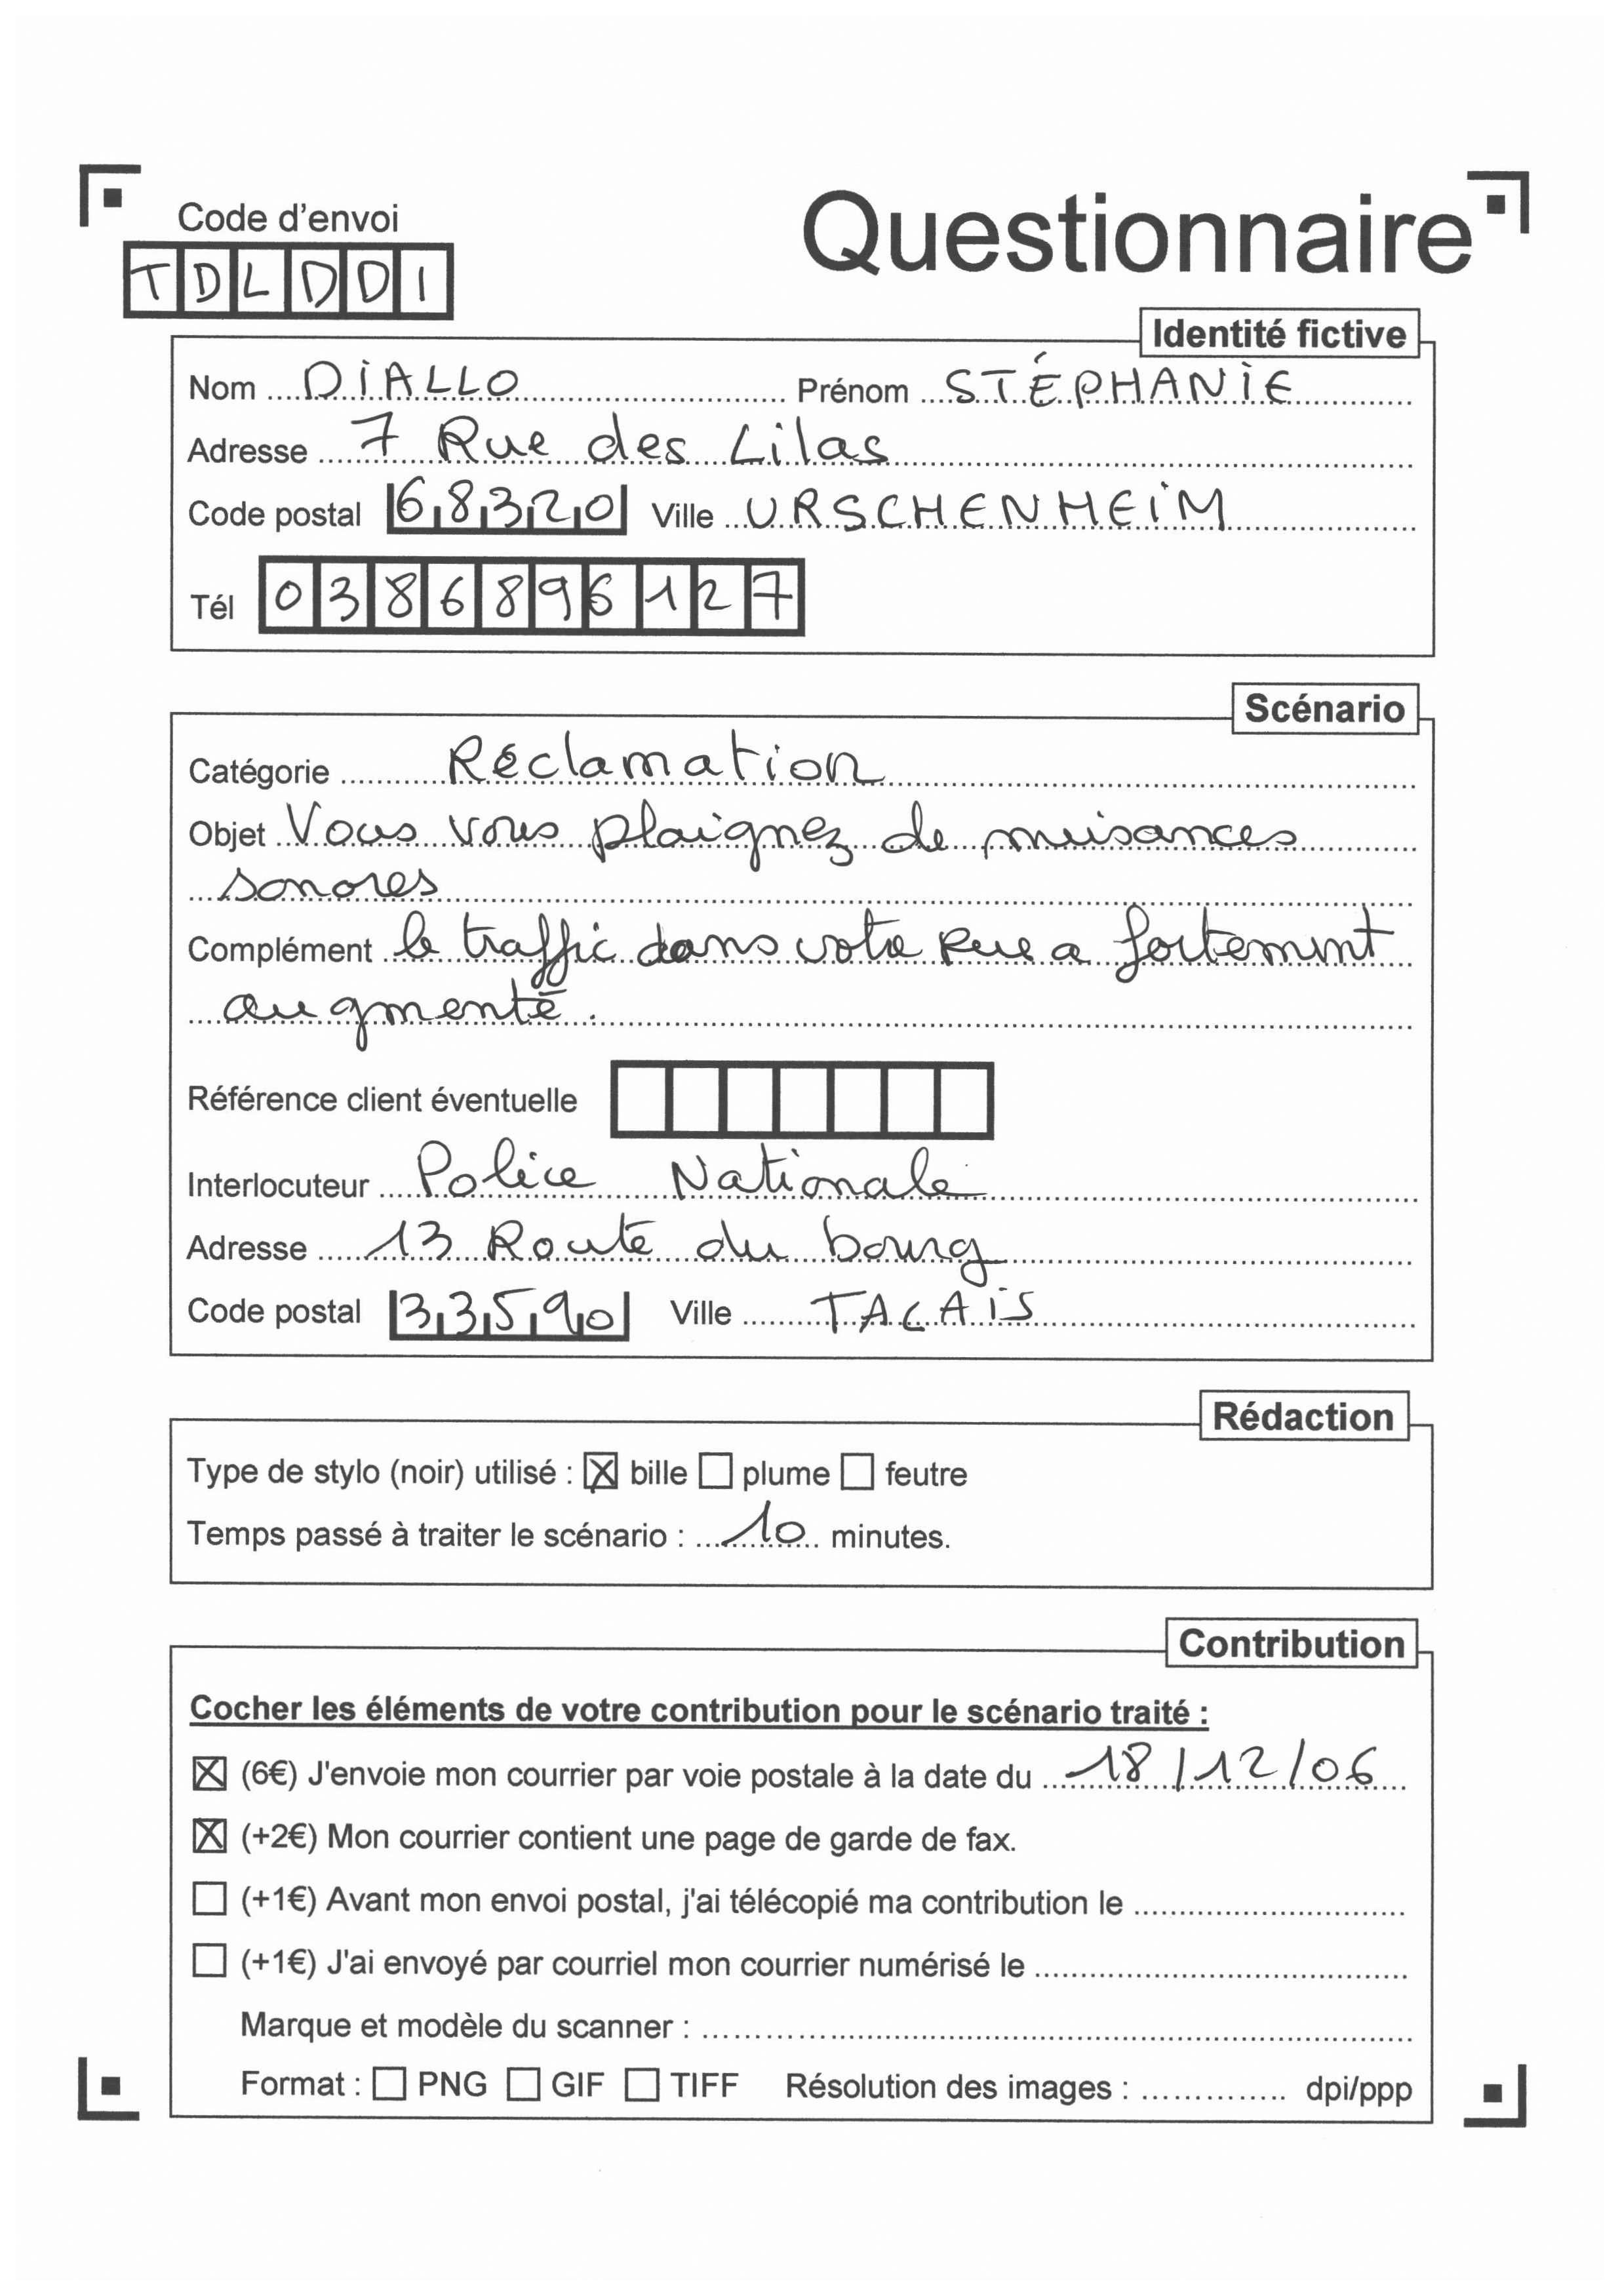 Code d'envoi
Questionnaire
TDLDDI
Identité fictive
Nom DIALLO Prénom STÉPHANIE
Adresse 7 Rue des Lilas
Code postal 68320 Ville URSCHENHEIM
Tél 0386896127
Scénario
Catégorie Réclamation
Objet Vous vous plaignez de nuisances
sonores
Complément le traffic dans votre Rue a fortement
augmenté.
Référence client éventuelle
Interlocuteur Police Nationale
Adresse 13 Route du bourg
Code postal 33590 Ville TALAIS
Rédaction
Type de stylo (noir) utilisé : ☒ bille ☐ plume ☐ feutre
Temps passé à traiter le scénario : 10 minutes.
Contribution
Cocher les éléments de votre contribution pour le scénario traité :
☒ (6€) J'envoie mon courrier par voie postale à la date du 18/12/06
☒ (+2€) Mon courrier contient une page de garde de fax.
☐ (+1€) Avant mon envoi postal, j'ai télécopié ma contribution le
☐ (+1€) J'ai envoyé par courriel mon courrier numérisé le
Marque et modèle du scanner :
Format : ☐ PNG ☐ GIF ☐ TIFF Résolution des images : dpi/ppp